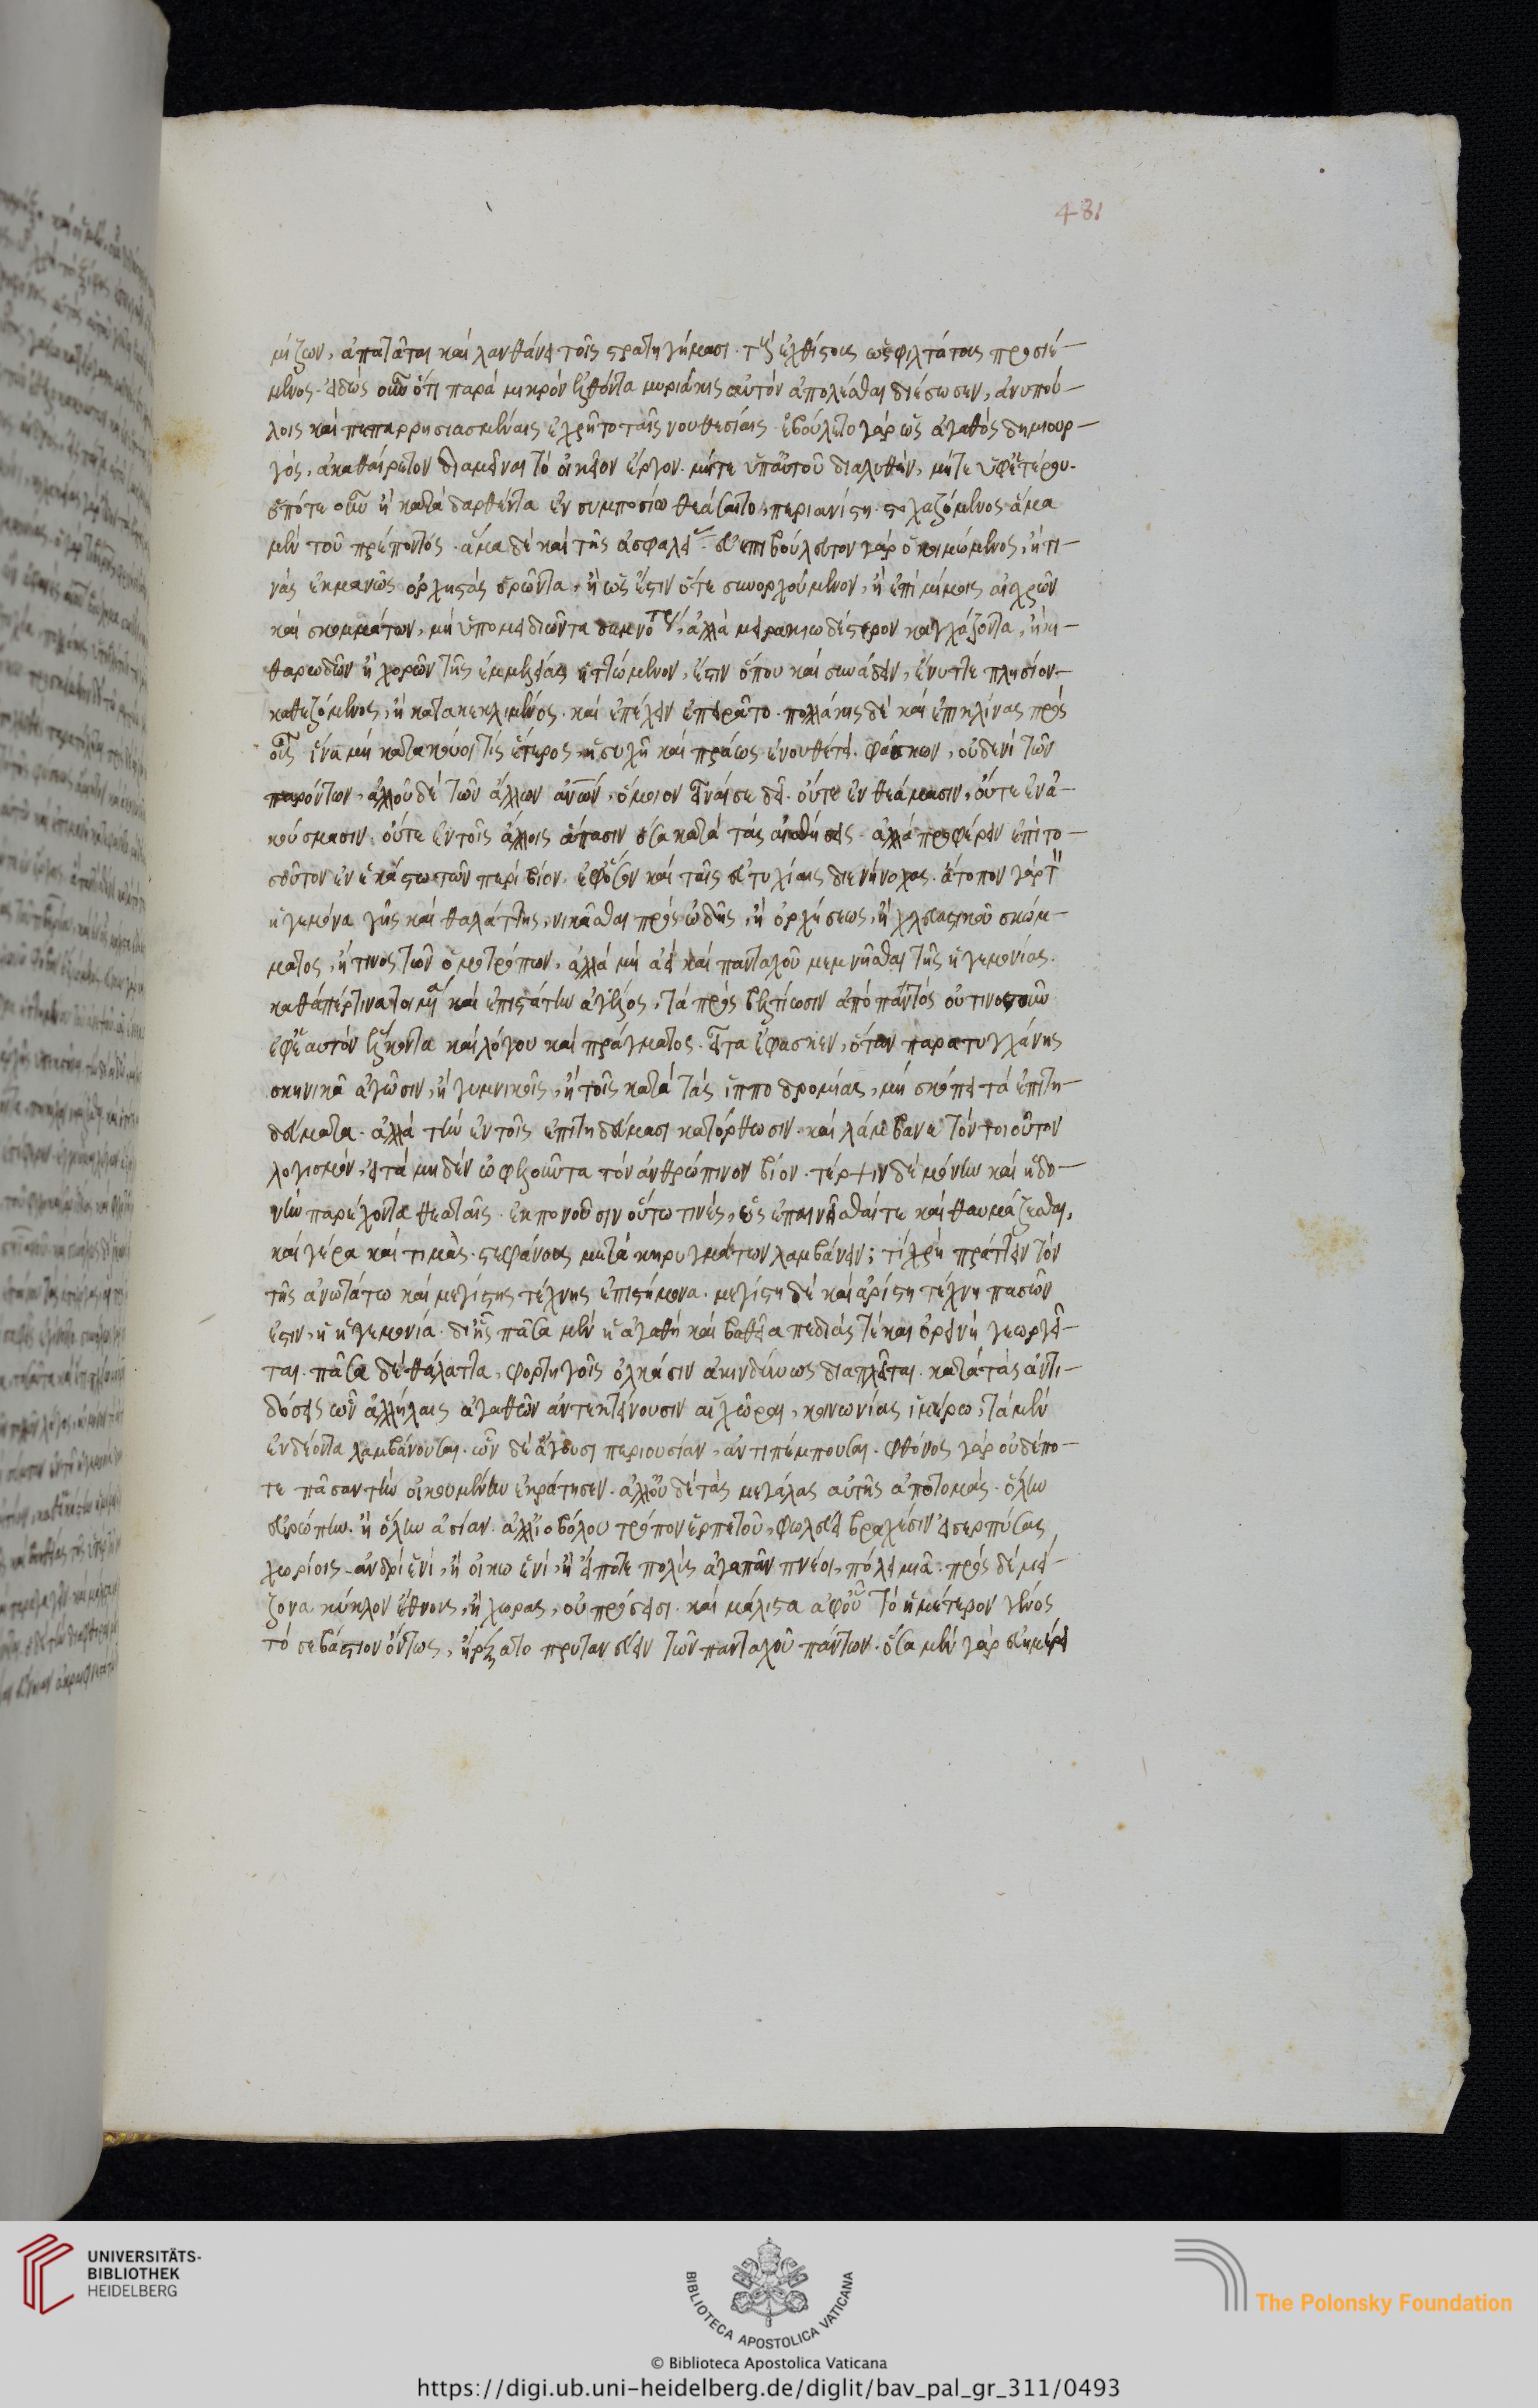 481
μίζων, ἀπατᾶται καὶ λανθάνει τοῖς στρατηγήμασι. τοὺς ἐχθίστους ὡς φιλτάτους προσιέ-
μενος. εἰδὼς οὖν ὅτι παρὰ μικρὸν ἐλθόντα μυριάκις αὐτὸν ἀπολέσθαι διέσωσεν, ἀνυπού-
λοις καὶ πεπαρρησιασμέναις ἐχρῆτο ταῖς νουθεσίαις. ἐβούλετο γὰρ ὡς ἀγαθὸς δημιουρ-
γός, ἀκαθαίρετον διαμεῖναι τὸ οἰκεῖον ἔργον. μήτε ὑπ' αὐτοῦ διαλυθέν, μήτε ὑφ' ἑτέρου.
ὁπότε οὖν ἢ καταδαρθέντα ἐν συμποσίῳ θεάσαιτο, περιανίστη. στοχαζόμενος ἅμα
μὲν τοῦ πρέποντος. ἅμα δὲ καὶ τῆς ἀσφαλείας. εὐεπιβούλευτον γὰρ ὁ κοιμώμενος, ἤ τι-
νας ἐκμανῶς ὀρχηστὰς ὁρῶντα, ἢ ὡς ἔστιν ὅτε συνορχούμενον, ἢ ἐπὶ μίμοις αἰσχρῶν
καὶ σκομμάτων, μὴ ὑπομειδιῶντα σεμνότερον, ἀλλὰ μειρακιωδέστερον καγχάζοντα, ἢ κι-
θαρωδῶν ἢ χορῶν τῆς ἐμμελείας ἡττώμενον, ἔστιν ὅπου καὶ συνάδειν, ἔνυττε πλησίον
καθεζόμενος, ἢ κατακεκλιμένος. καὶ ἐπέχειν ἐπειρᾶτο. πολλάκις δὲ καὶ ἐπικλίνας πρὸς
οὖς ἵνα μὴ κατακούοι τὶς ἕτερος, ἡσυχῆ καὶ πράως ἐνουθέτει. φάσκων, οὐδενὶ τῶν
παρόντων, ἀλλ' οὐδὲ τῶν ἄλλων ἀνθρώπων, ὅμοιον εἶναί σε δεῖ. οὔτε ἐν θεάμασιν, οὔτε ἐν ἀ-
κούσμασιν. οὔτε ἐν τοῖς ἄλλοις ἅπασιν ὅσα κατὰ τὰς αἰσθήσεις. ἀλλὰ προφέρειν ἐπὶ το-
σοῦτον ἐν ἑκάστω τῶν περὶ βίον. ἐφ' ὅσον καὶ ταῖς εὐτυχίαις διενήνοχας. ἄτοπον γὰρ τὸν
ἡγεμόνα γῆς καὶ θαλάττης, νικᾶσθαι πρὸς ὠδῆς, ἢ ὀρχήσεως, ἢ χλευαστικοῦ σκώμ-
ματος, ἤ τινος τῶν ὁμοτρόπων, ἀλλὰ μὴ ἀεὶ καὶ πανταχοῦ μεμνῆσθαι τῆς ἡγεμονίας.
καθάπερ τινα ποιμένα καὶ ἐπιστάτην ἀγέλης, τὰ πρὸς βελτίωσιν ἀπὸ παντὸς οὑτινοσοῦν
ἐφ' ἑαυτὸν ἕλκοντα καὶ λόγου καὶ πράγματος. εἶτα ἔφασκεν, ὅταν παρατυγχάνης
σκηνικοῖς ἀγῶσιν, ἢ γυμνικοῖς, ἢ τοῖς κατὰ τὰς ἱπποδρομίας, μὴ σκόπει τὰ ἐπιτη-
δεύματα. ἀλλὰ τὴν ἐν τοῖς ἐπιτηδεύμασι κατόρθωσιν. καὶ λάμβανε τὸν τοιοῦτον
λογισμόν, εἰ τὰ μηδὲν ὠφελοῦντα τὸν ἀνθρώπινον βίον. τέρψιν δὲ μόνην καὶ ἡδο-
νὴν παρέχοντα θεαταῖς. ἐκπονοῦσιν οὕτω τινές, ὡς ἐπαινεῖσθαί τε καὶ θαυμάζεσθαι,
καὶ γέρα καὶ τιμὰς. στεφάνους μετὰ κηρυγμάτων λαμβάνειν; τί χρὴ πράττειν τὸν
τῆς ἀνωτάτω καὶ μεγίστης τέχνης ἐπιστήμονα. μεγίστη δὲ καὶ ἀρίστη τέχνη πασῶν
ἐστιν, ἡ ἡγεμονία. δι' ἧς πᾶσα μὲν ἡ ἀγαθὴ καὶ βαθεῖα πεδιάς τε καὶ ὀρεινὴ γεωργεῖ-
ται. πᾶσα δὲ θάλαττα, φορτηγοῖς ὁλκάσιν ἀκινδύνως διαπλεῖται. κατὰ τὰς ἀντι-
δόσεις ὧν ἀλλήλαις ἀγαθῶν ἀντεκτείνουσιν αἱ χῶραι, κοινωνίας ἱμέρω, τὰ μὲν
ἐνδέοντα λαμβάνουσαι. ὧν δὲ ἄγουσι περιουσίαν, ἀντιπέμπουσαι. φθόνος γὰρ οὐδέπο-
τε πᾶσαν τὴν οἰκουμένην ἐκράτησεν. ἀλλ' οὐδὲ τὰς μεγάλας αὐτῆς ἀποτομάς. ὅλην
εὐρώπην. ἢ ὅλην ἀσίαν. ἀλλ' ἰοβόλου τρόπον ἑρπετοῦ, φωλεύει βραχέσιν εἰσερπύσας
χωρίοις. ἀνδρὶ ἑνί, ἢ οἴκω ἑνί, ἢ εἴ ποτε πολὺς ἄγαν πνέοι, πόλει μιᾶ. πρὸς δὲ μεί-
ζονα κύκλον ἔθνους, ἢ χώρας, οὐ πρόσεισι. καὶ μάλιστα ἀφ' οὗ τὸ ἡμέτερον γένος
τὸ σεβάστιον ὄντως, ἤρξατο πρυτανεύειν τῶν πανταχοῦ πάντων. ὅσα μὲν γὰρ εὐημέρει
UNIVERSITÄTS-
BIBLIOTHEK
HEIDELBERG
BIBLIOTECA APOSTOLICA VATICANA
The Polonsky Foundation
© Biblioteca Apostolica Vaticana
https://digi.ub.uni-heidelberg.de/diglit/bav_pal_gr_311/0493